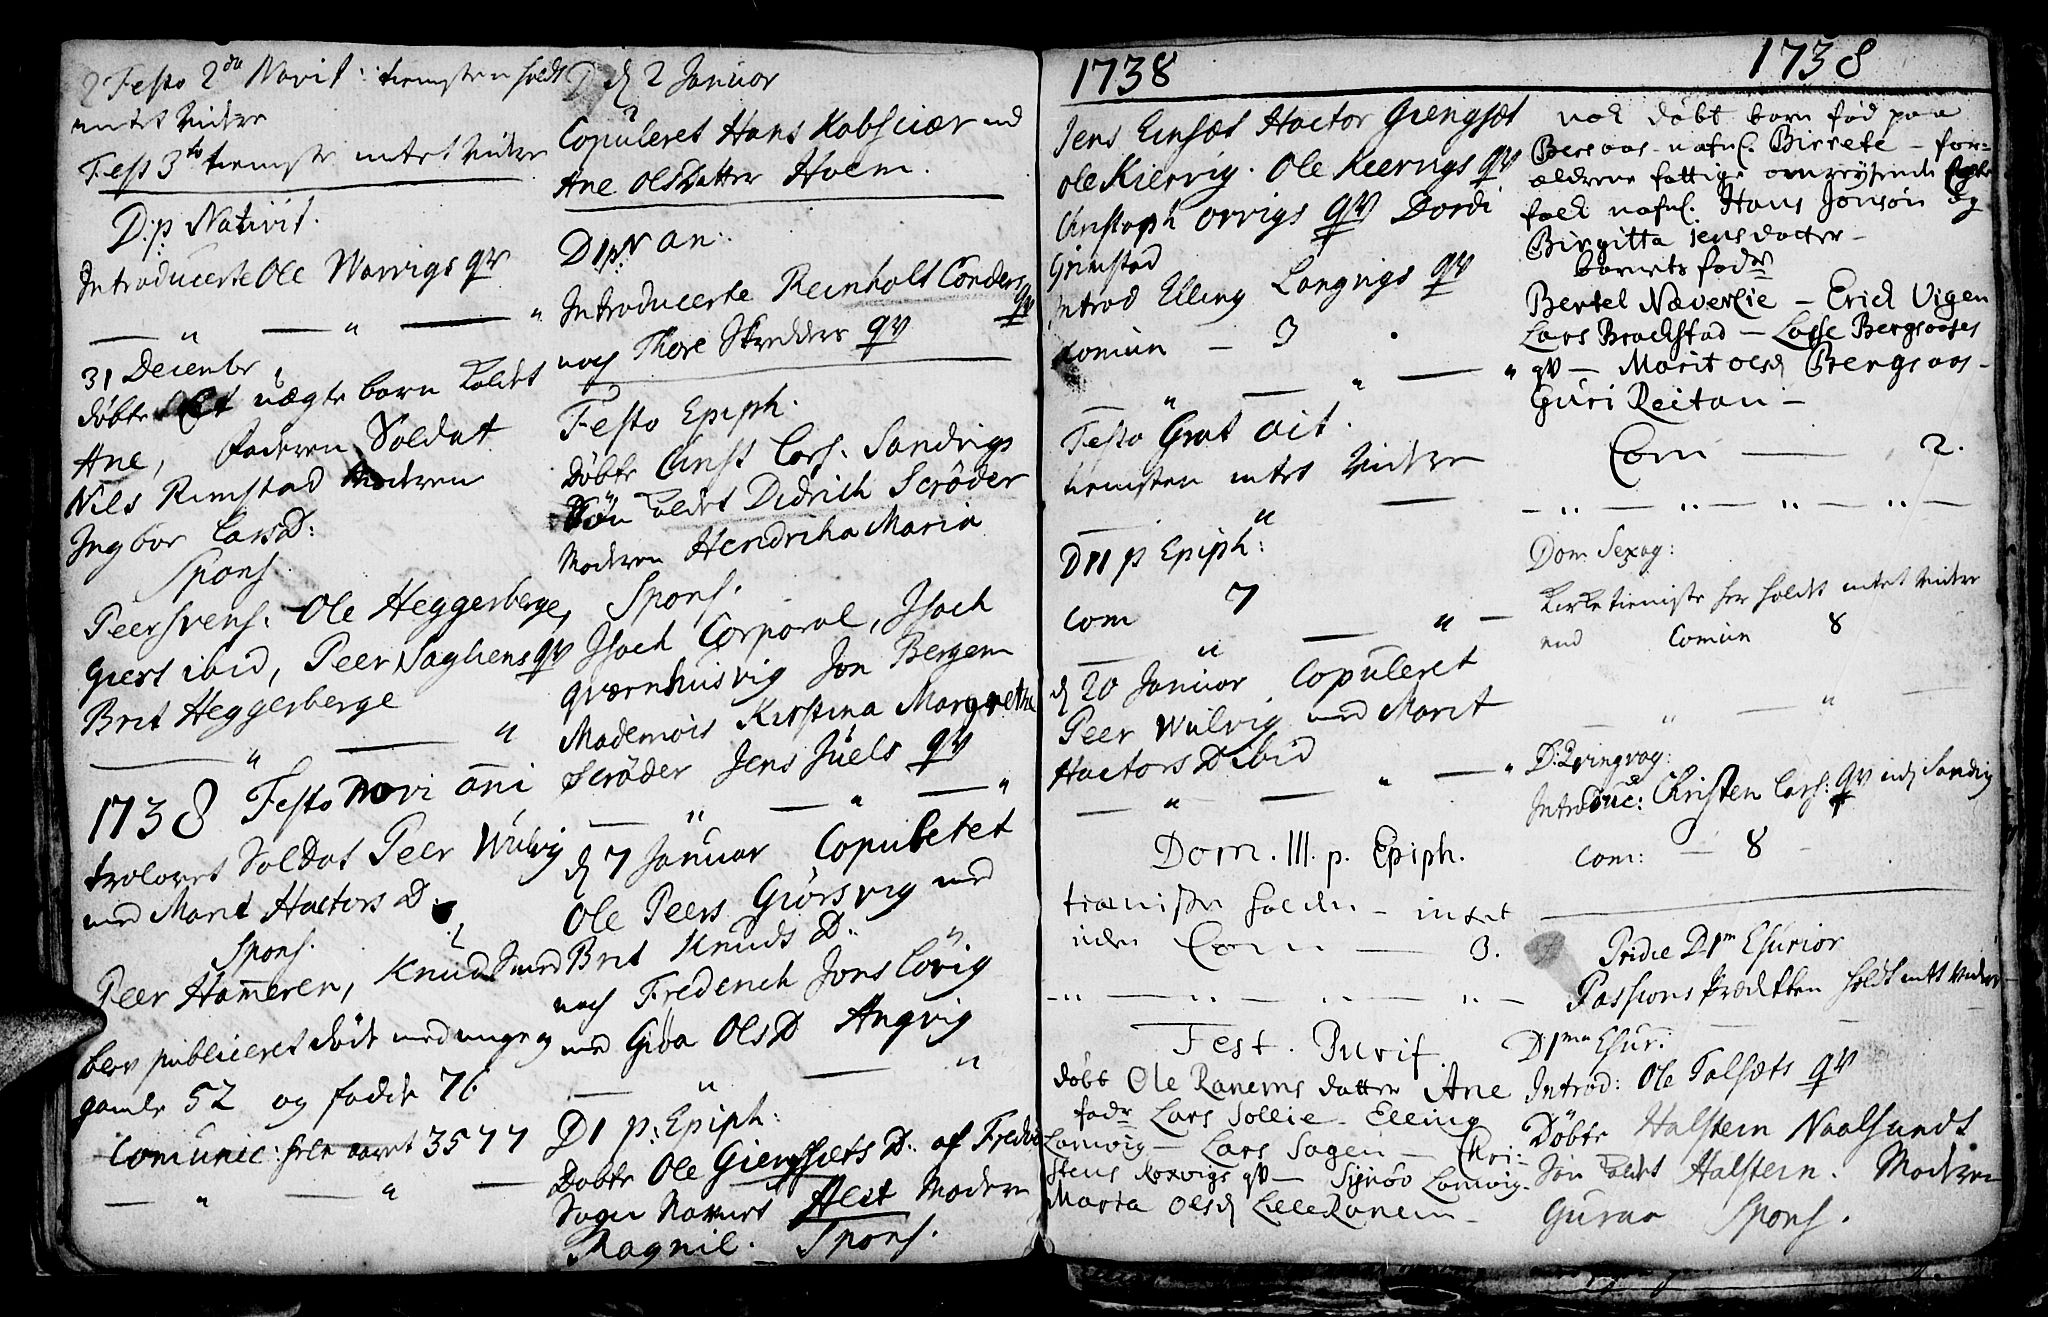 2 Festo 2da Navit: tienesten holdt
intet videre
Fest 3tio tieneste intet videre
D: p: Nativit.
Introducerte Ole Warvigs qv
31 December,
døbte Et uægte barn kaldet
Ane, Faderen Soldat
Nils Rimstad Moderen
Ingbor LarsD:
Spons.
Peer Svens: Ole Heggerberge,
Giert ibid, Peer Sagliens qv
Brit Heggerberge
1738 Festo Novi Ani
trolovet Soldat Peer Wulvig
med Marit Hactors D.
Spons.
Peer Hameren, Knud Smed
blev publiceret død med unge og
gamle 52 og fødde 76
Comunic: hele aaret 3577
D 2 Januar
Copuleret Hans Kobscier med
Ane OlsDatter Hoem.
D 1 p N an:
Introducerte Reinholt Conders qv
noch Thore Skredders qv
Festo Epiph.
Døbte Christ Lars: Sandvigs
Søn kaldet Didrich Scrøder
Moderen Hendricha Maria
Spons.
Isach Corporal, Isach
Qværnhusvig Jon Bergem
Mademois Kirstina Margrethe
Scrøder Jens Juels qv
d 7 Januar Copuleret
Ole Peers Giørsvig med
Brit Knuds D:
noch Frederich Jons Løvig
med Giøa OlsD Angvig
D 1 p: Epiph:
Døbte Ole Giengsets D: af Fredvi
Sogn Navnet Alet Moderen
Ragnil. Spons.
1738
Jens Einset Hactor Giengset
Ole Kiervig. Ole Kiervigs qv
Christoph Orvigs qv Dordi
Grimstad
Introd Elling Langvigs qv
Comun — 3
Festo Grat act.
tienisten intet videre
D II p Epiph:
Com 7
d 20 Januar Copuleret
Peer Wulvig med Marit
Hactors D ibid
Dom. III. p. Epiph.
tienisten holden — intet
uden Com — 3.
Fest. Purif.
døbt Ole Ranems datter Ane
fadr Lars Sollie — Elling
Lanwig — Lars Sagen — Chri:
stens Roxvigs qv — Synøv Lanwig.
Marta Olsd LilleRanem —
1738
nok døbt barn fød paa
Bersaas — nafnl. Birrete — for=
ældrene fattige omreysende Egte
folk nafnl. Hans Jonsøn og
Birgitta Jensdatter —
barnets fadr
Bertel Næverlie — Erick Vigen
Lars Brackstad — Lasse Bergsaases
qv — Marit olsd Bergsaas —
Guri Reitan —
Com — 2.
Dom Sexag:
Kirketieniste her holdt intet videre
end Comun 8
D: Qvinqvag:
Introduc: Christen Lars: qv ved Sandvig
Com: — 8
Pridie D 1m Esurior
Passions Prædiken holdt intet videre
D 1ma Esur:
Introd: Ole Talsæts qv
Døbte Halstein Naalsunds
Søn kaldt Halstein. Moderen
Guran Spons.